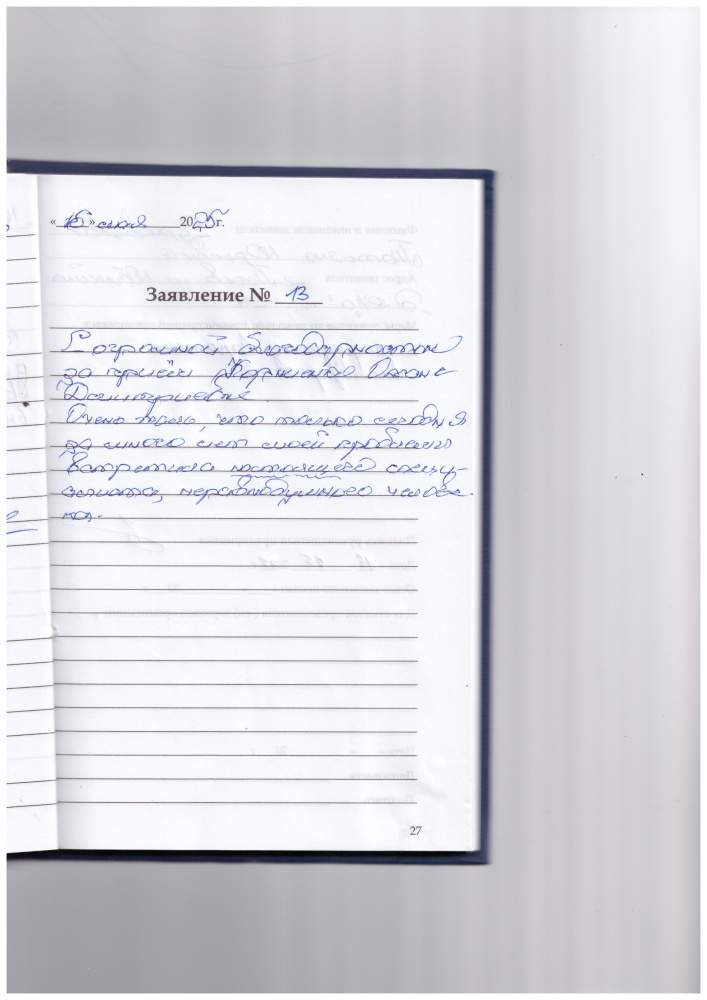 «15» мая 2025г.
Заявление № 13
С огромной благодарностью
за приём Корниенко Оксане
Дмитриевне
Очень жаль, что только сегодня
за много лет моей проблемы
встретила настоящего специ-
алиста, неравнодушного челове-
ка.
27